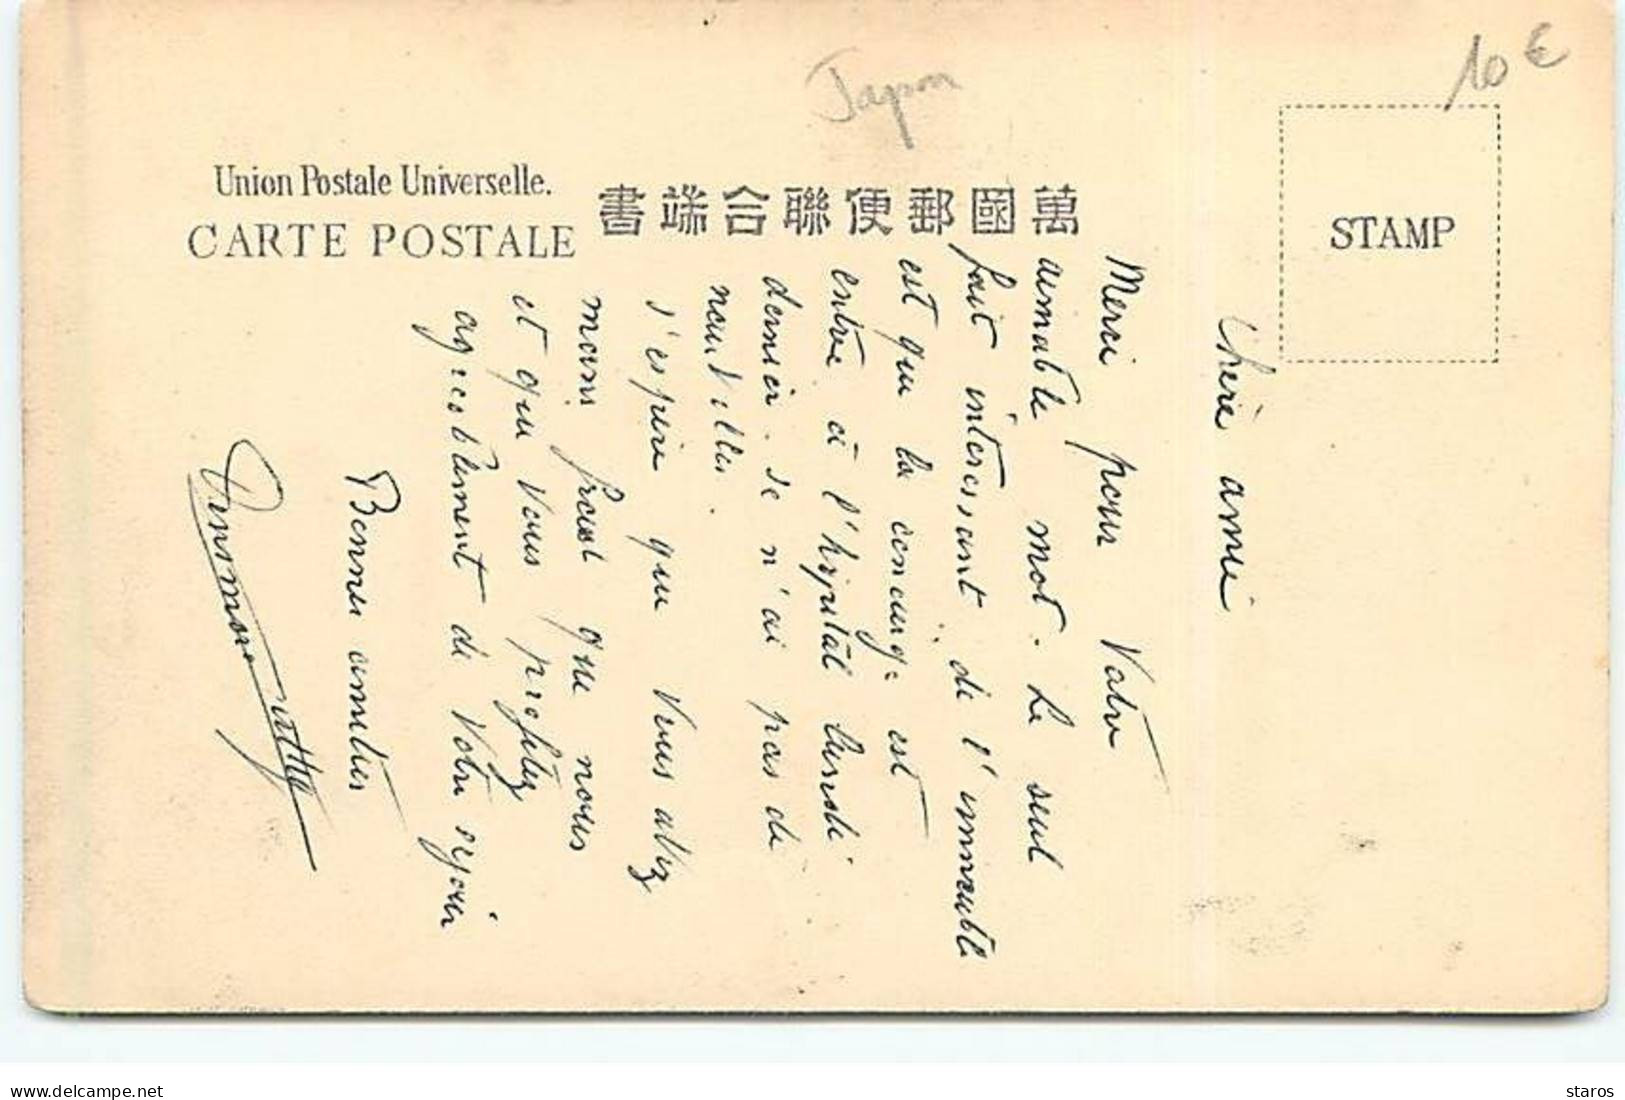 Japon
10 €
Union Postale Universelle.
CARTE POSTALE
萬國郵便聯合端書
STAMP
Chère amie
Merci pour Votre
aimable mot. Le seul
fait intéressant de l'immeuble
est que la concierge est
entrée à l'hôpital lundi
dernier. Je n'ai pas de
nouvelles.
J'espère que vous avez
moins froid que nous
et que vous profitez
agréablement de Votre séjour
Bonnes amitiés
delcampe.net
staros